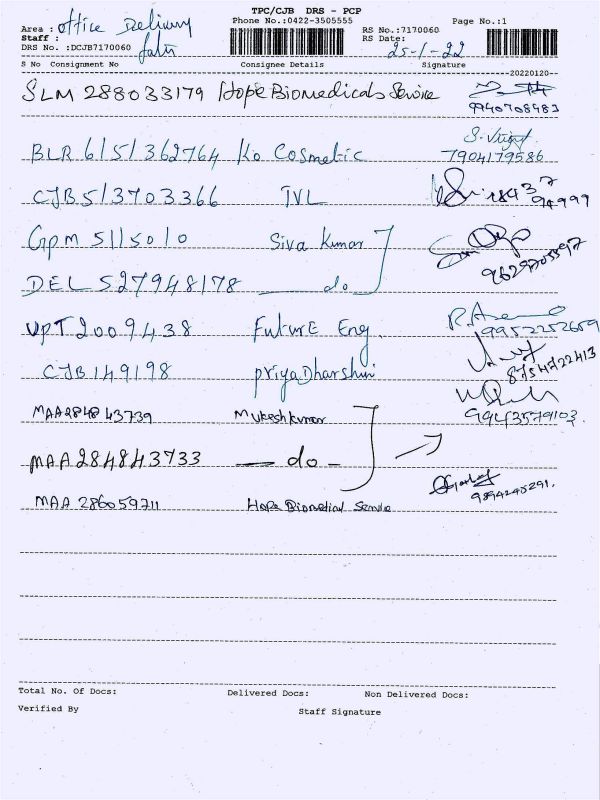 TPC/CJB DRS - PCP
Area : office Delivery
Phone No.:0422-3505555
Page No.:1
Staff :
RS No.:7170060
DRS No. :DCJB7170060
RS Date: 25-1-22
S No Consignment No Consignee Details Signature
20220120
SLM 288033179 Hope Biomedicals Service
9940708983
BLR 6/5/362764 Ko Cosmetic
7904179586
CJB 513703366 IVL
GPM 5115010 Siva Kumar
DEL 527948178 do
9629705597
VPT 2009438 Future Eng.
9952252659
CJB 149198 PriyaDharshini
8754722413
MAA284843739 Mukeshkumar
9943579103
MAA284843733 do
MAA 286059711 Hope Biomedical Service
9894245291.
Total No. Of Docs: Delivered Docs: Non Delivered Docs:
Verified By Staff Signature